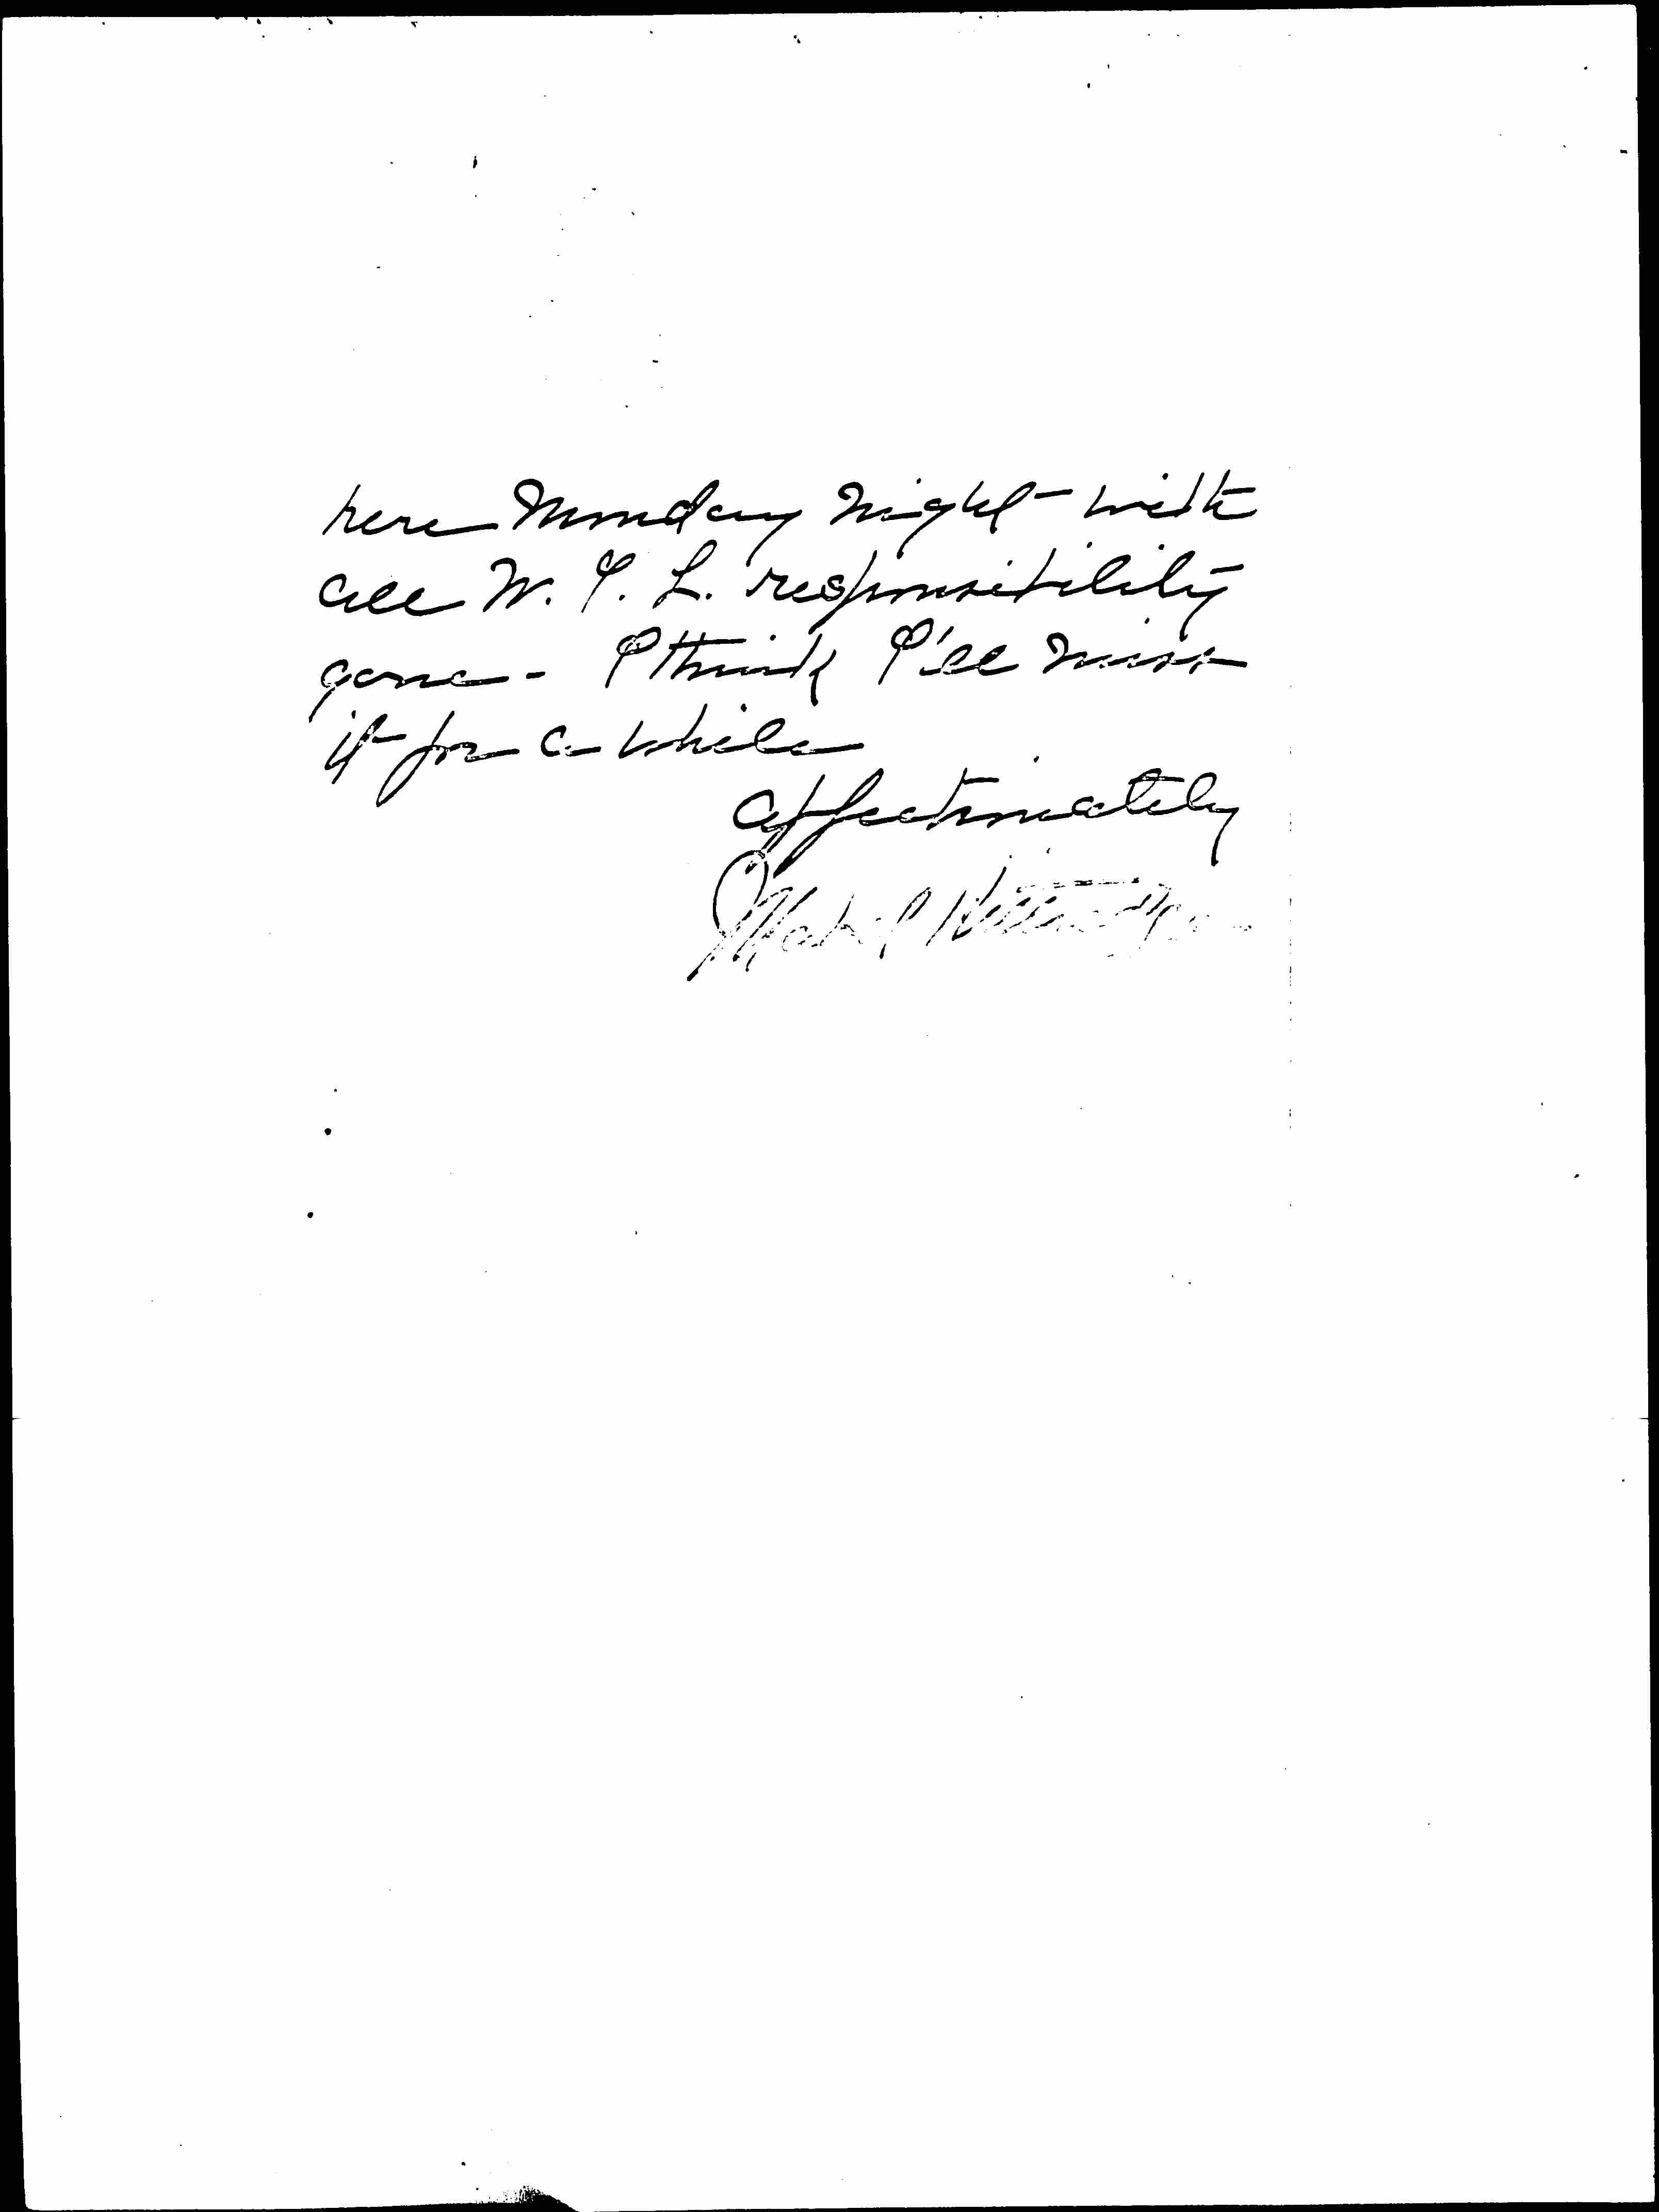 here Monday night - with
all W. I. L. responsibility
gone - I think I'll miss
it for a while
affectionately
Mabel